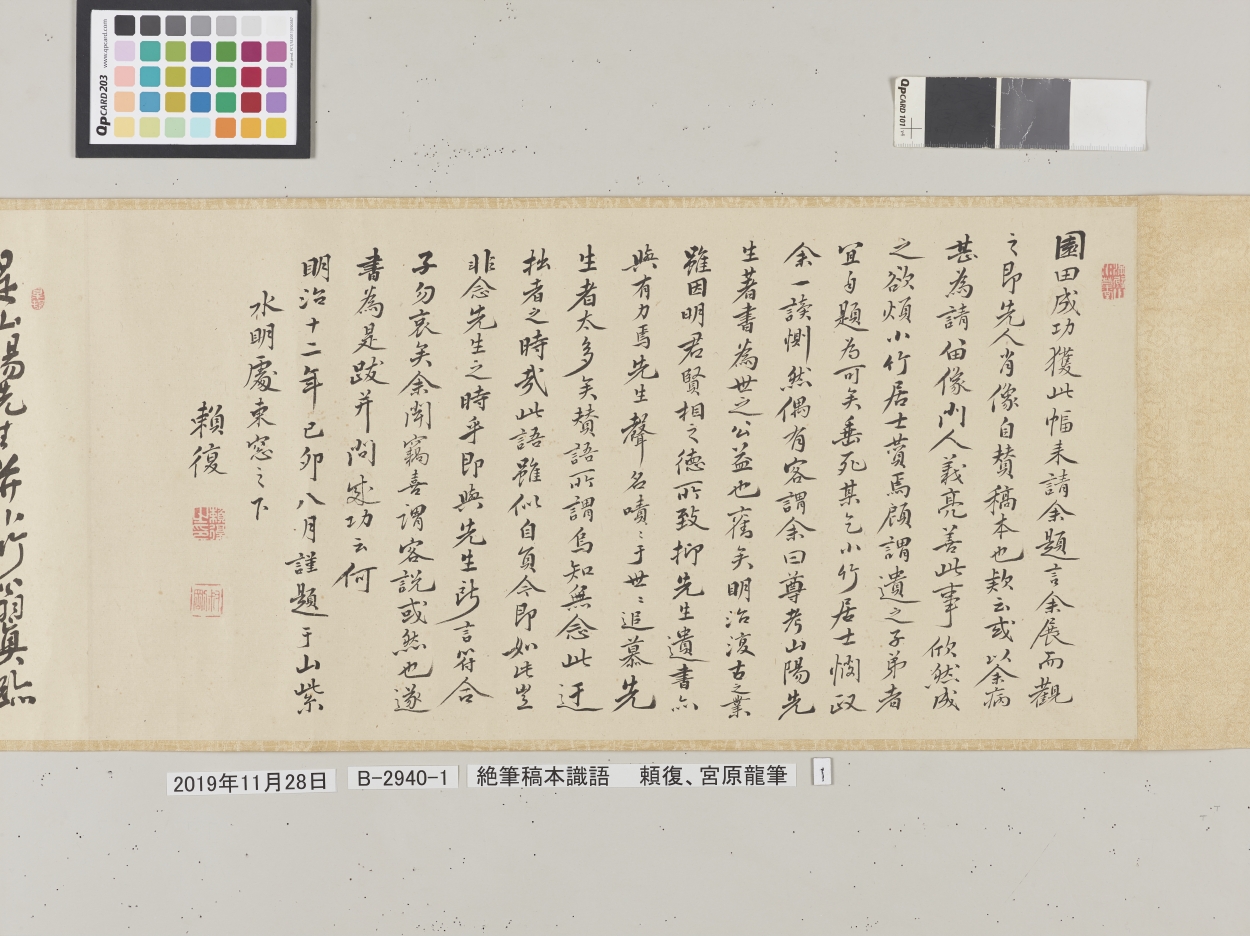 園田成功獲此幅来請余題言余展而觀
之即先人肖像自賛稿本也欵云或以余病
甚為請留像門人義亮善此事欣然成
之欲煩小竹居士賛焉顧謂遺之子弟者
宜自題為可矣垂死某乞小竹居士悯政
余一讀惻然偶有客謂余曰尊考山陽先
生著書為世之公益也舊矣明治復古之業
雖因明君賢相之德所致抑先生遺書亦
與有力焉先生聲名嘖々于世々追慕先
生者太多矣賛語所謂烏知無念此迂
拙者之時哉此語雖似自負今即如此豈
非念先生之時乎即與先生所言符合
子勿哀矣余聞竊喜謂客説或然也遂
書為是跋并問成功云何
明治十二年己卯八月謹題于山紫
水明處東窓之下
賴復
是山陽先生并小竹翁真臨
2019年11月28日
B-2940-1
絶筆稿本識語 頼復、宮原龍筆
1
QpCARD 203
www.qpcard.com
QpCARD 101